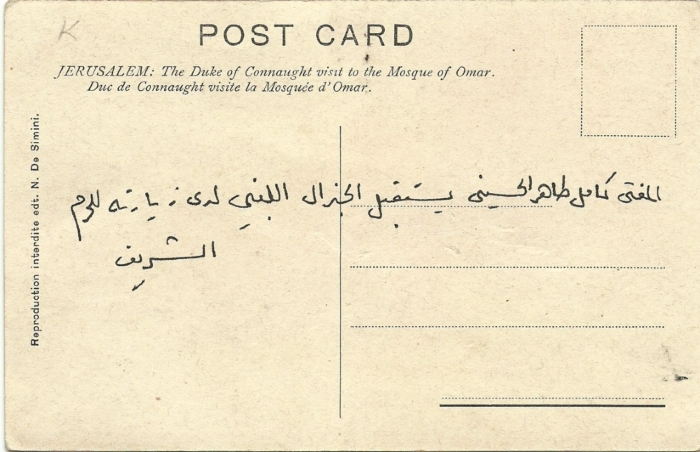 K
POST CARD
JERUSALEM: The Duke of Connaught visit to the Mosque of Omar.
Duc de Connaught visite la Mosquée d'Omar.
Reproduction interdite edt. N. De Simini.
المفتى كامل طاهر الحسينى يستقبل الجنرال اللنبي لدى زيارته للحرم
الشريف